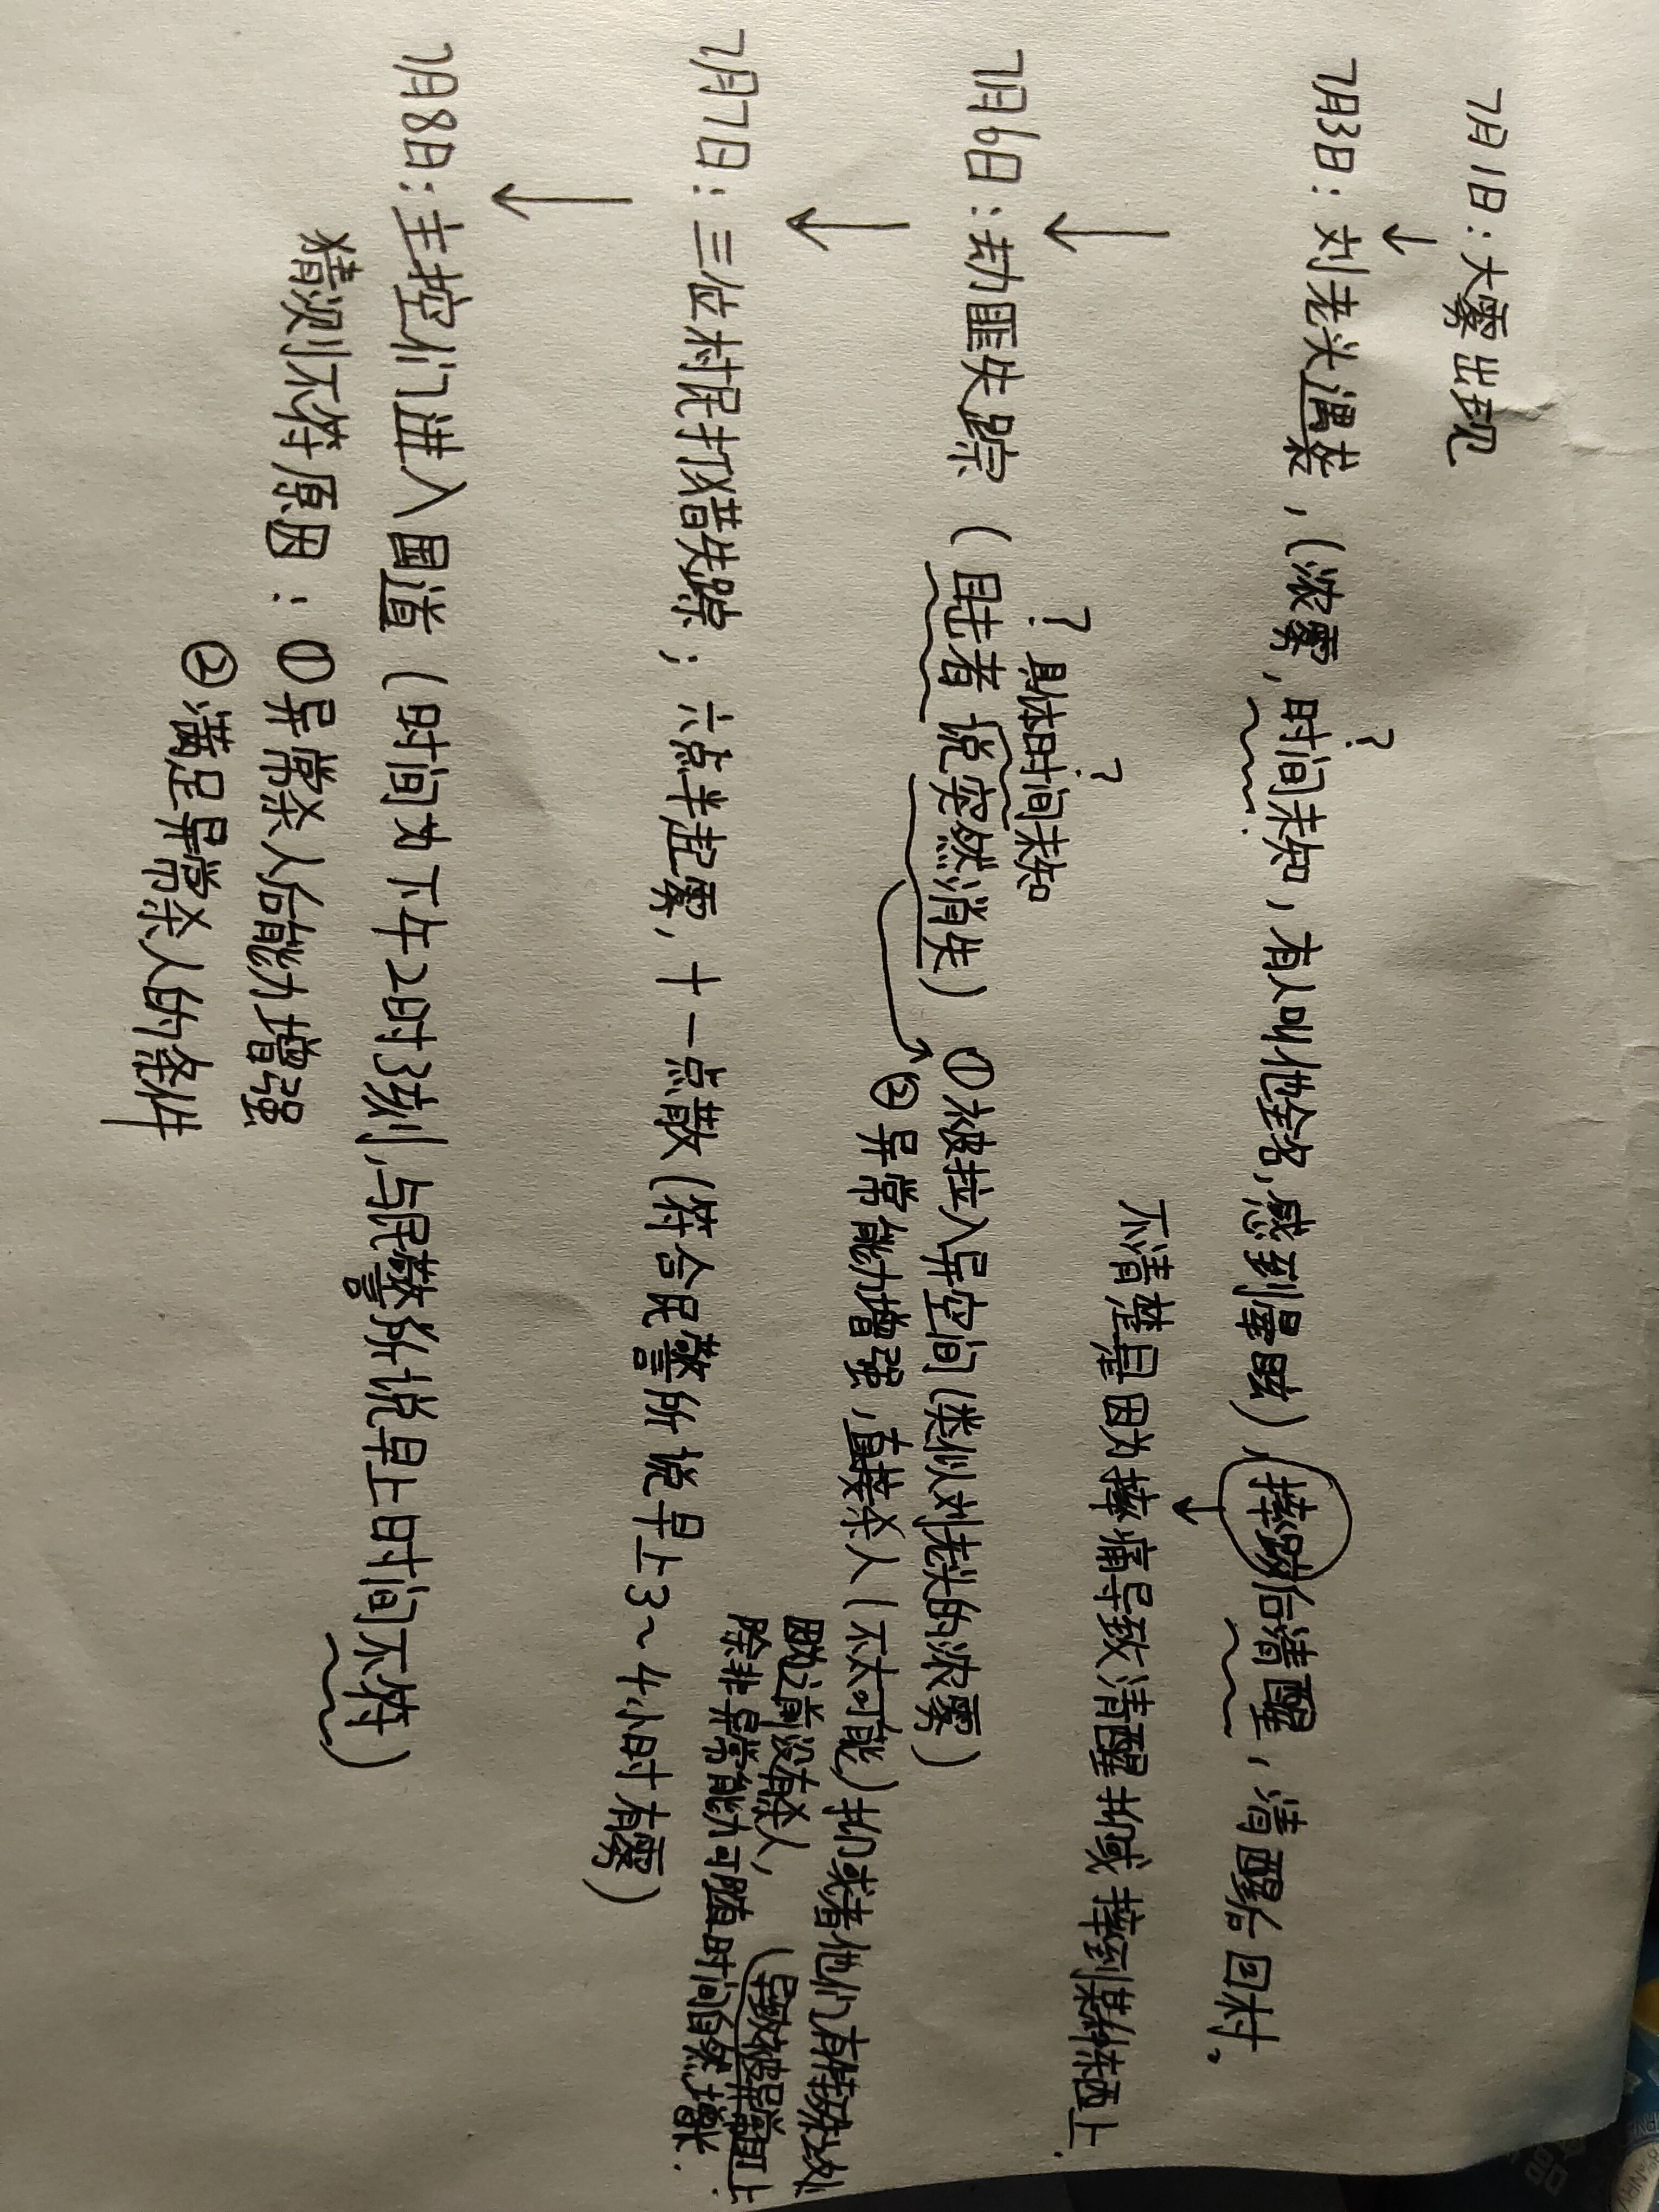 7月1日：大雾出现
↓
7月3日：刘老头遇袭，(浓雾，时间未知，有人叫他全名，感到晕眩)，摔跤后清醒，清醒后回村。
?
↓
不清楚是因为摔痛导致清醒或摔到某种东西上.
↓
? 具体时间未知
?
7月6日：劫匪失踪（目击者说突然消失）①被拉入异空间(类似刘老头的浓雾)
②异常能力增强，直接杀人(不大可能)或者他们有特殊之处
因为之前没有杀人， (导致被异常盯上
除非异常能力可随时间自然增长.
↓
7月7日：三位村民打猎失踪；六点半起雾，十一点散(符合民警所说早上3~4小时有雾)
↓
7月8日：主控们进入匿道（时间为下午2时3刻，与民警所说早上时间不符）
猜测不符原因：①异常杀人后能力增强
②满足异常杀人的条件